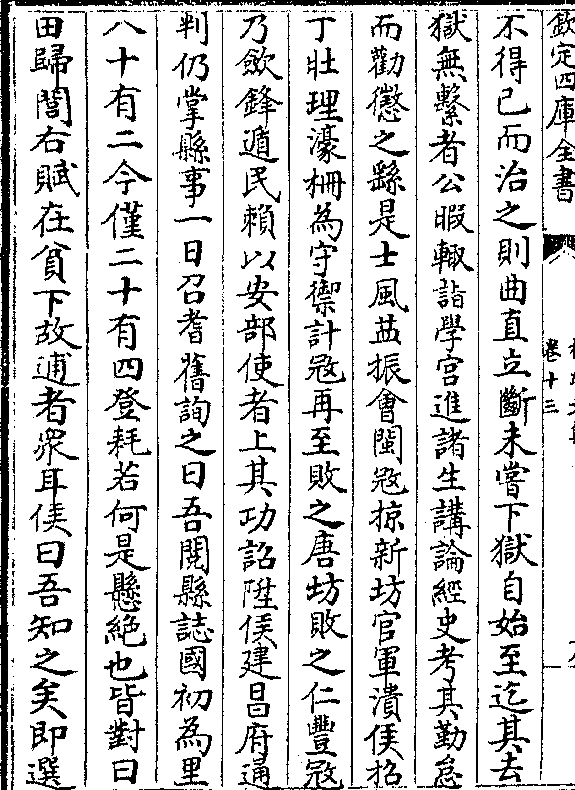 欽定四庫全書
卷十三
不得已而治之則曲直立斷未嘗下獄自始至迄其去
獄無繫者公暇輒詣學宫進諸生講論經史考其勤怠
而勸懲之繇是士風益振會閩冦掠新坊官軍潰侯招
丁壯理濠柵為守禦計冦再至敗之唐坊敗之仁豐冦
乃斂鋒遁民賴以安部使者上其功詔陞侯建昌府通
判仍掌縣事一日召耆舊詢之曰吾閱縣誌國初為里
八十有二今僅二十有四登耗若何是懸絶也皆對曰
田歸閭右賦在貧下故逋者衆耳侯曰吾知之矣即選